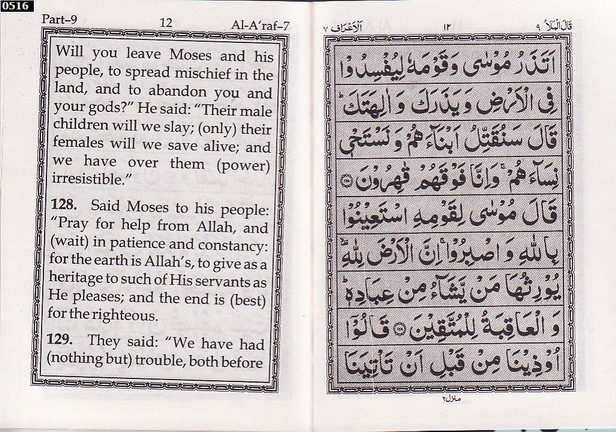 0516
Part–9 12 Al-A‘raf–7
Will you leave Moses and his
people, to spread mischief in the
land, and to abandon you and
your gods?” He said: “Their male
children will we slay; (only) their
females will we save alive; and
we have over them (power)
irresistible.”
128. Said Moses to his people:
“Pray for help from Allah, and
(wait) in patience and constancy:
for the earth is Allah’s, to give as a
heritage to such of His servants as
He pleases; and the end is (best)
for the righteous.
129. They said: “We have had
(nothing but) trouble, both before
قَالَ الْمَلَاُ ٩ ١٢ اَلْاَعْرَاف ٧
اَتَذَرُ مُوْسٰى وَقَوْمَهٗ لِيُفْسِدُوْا
فِى الْاَرْضِ وَيَذَرَكَ وَاٰلِهَتَكَ ؕ
قَالَ سَنُقَتِّلُ اَبْنَآءَهُمْ وَنَسْتَحْىٖ
نِسَآءَهُمْ ۚ وَاِنَّا فَوْقَهُمْ قٰهِرُوْنَ ﴿۱۲۷﴾
قَالَ مُوْسٰى لِقَوْمِهِ اسْتَعِيْنُوْا
بِاللّٰهِ وَاصْبِرُوْا ۚ اِنَّ الْاَرْضَ لِلّٰهِ ۙ
يُوْرِثُهَا مَنْ يَّشَآءُ مِنْ عِبَادِهٖ ؕ
وَالْعَاقِبَةُ لِلْمُتَّقِيْنَ ﴿۱۲۸﴾ قَالُوْۤا
اُوْذِيْنَا مِنْ قَبْلِ اَنْ تَاْتِيَنَا
منزل ٢